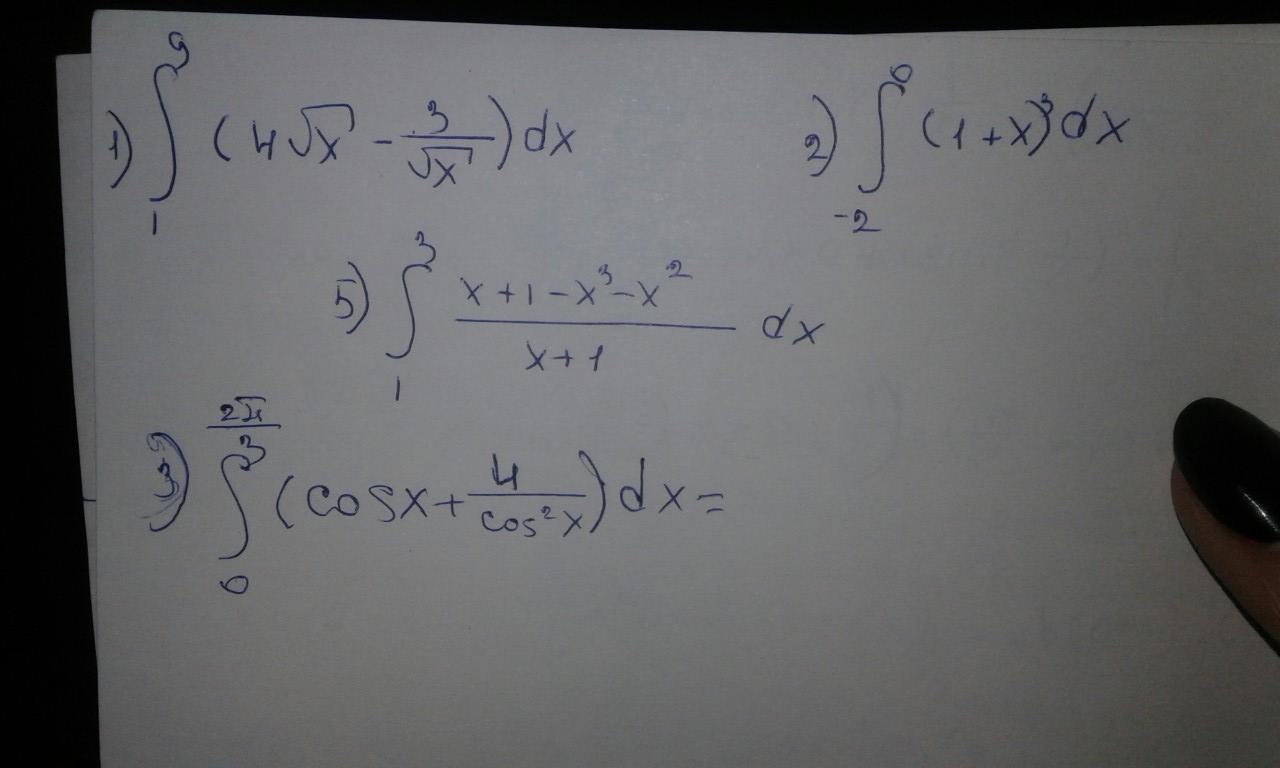 1) ∫₁⁹ (4√x - 3/√x) dx
2) ∫₋₂⁰ (1+x)³ dx
5) ∫₁³ (x+1-x³-x²)/(x+1) dx
∫₀^(2π/3) (cosx + 4/cos²x) dx =